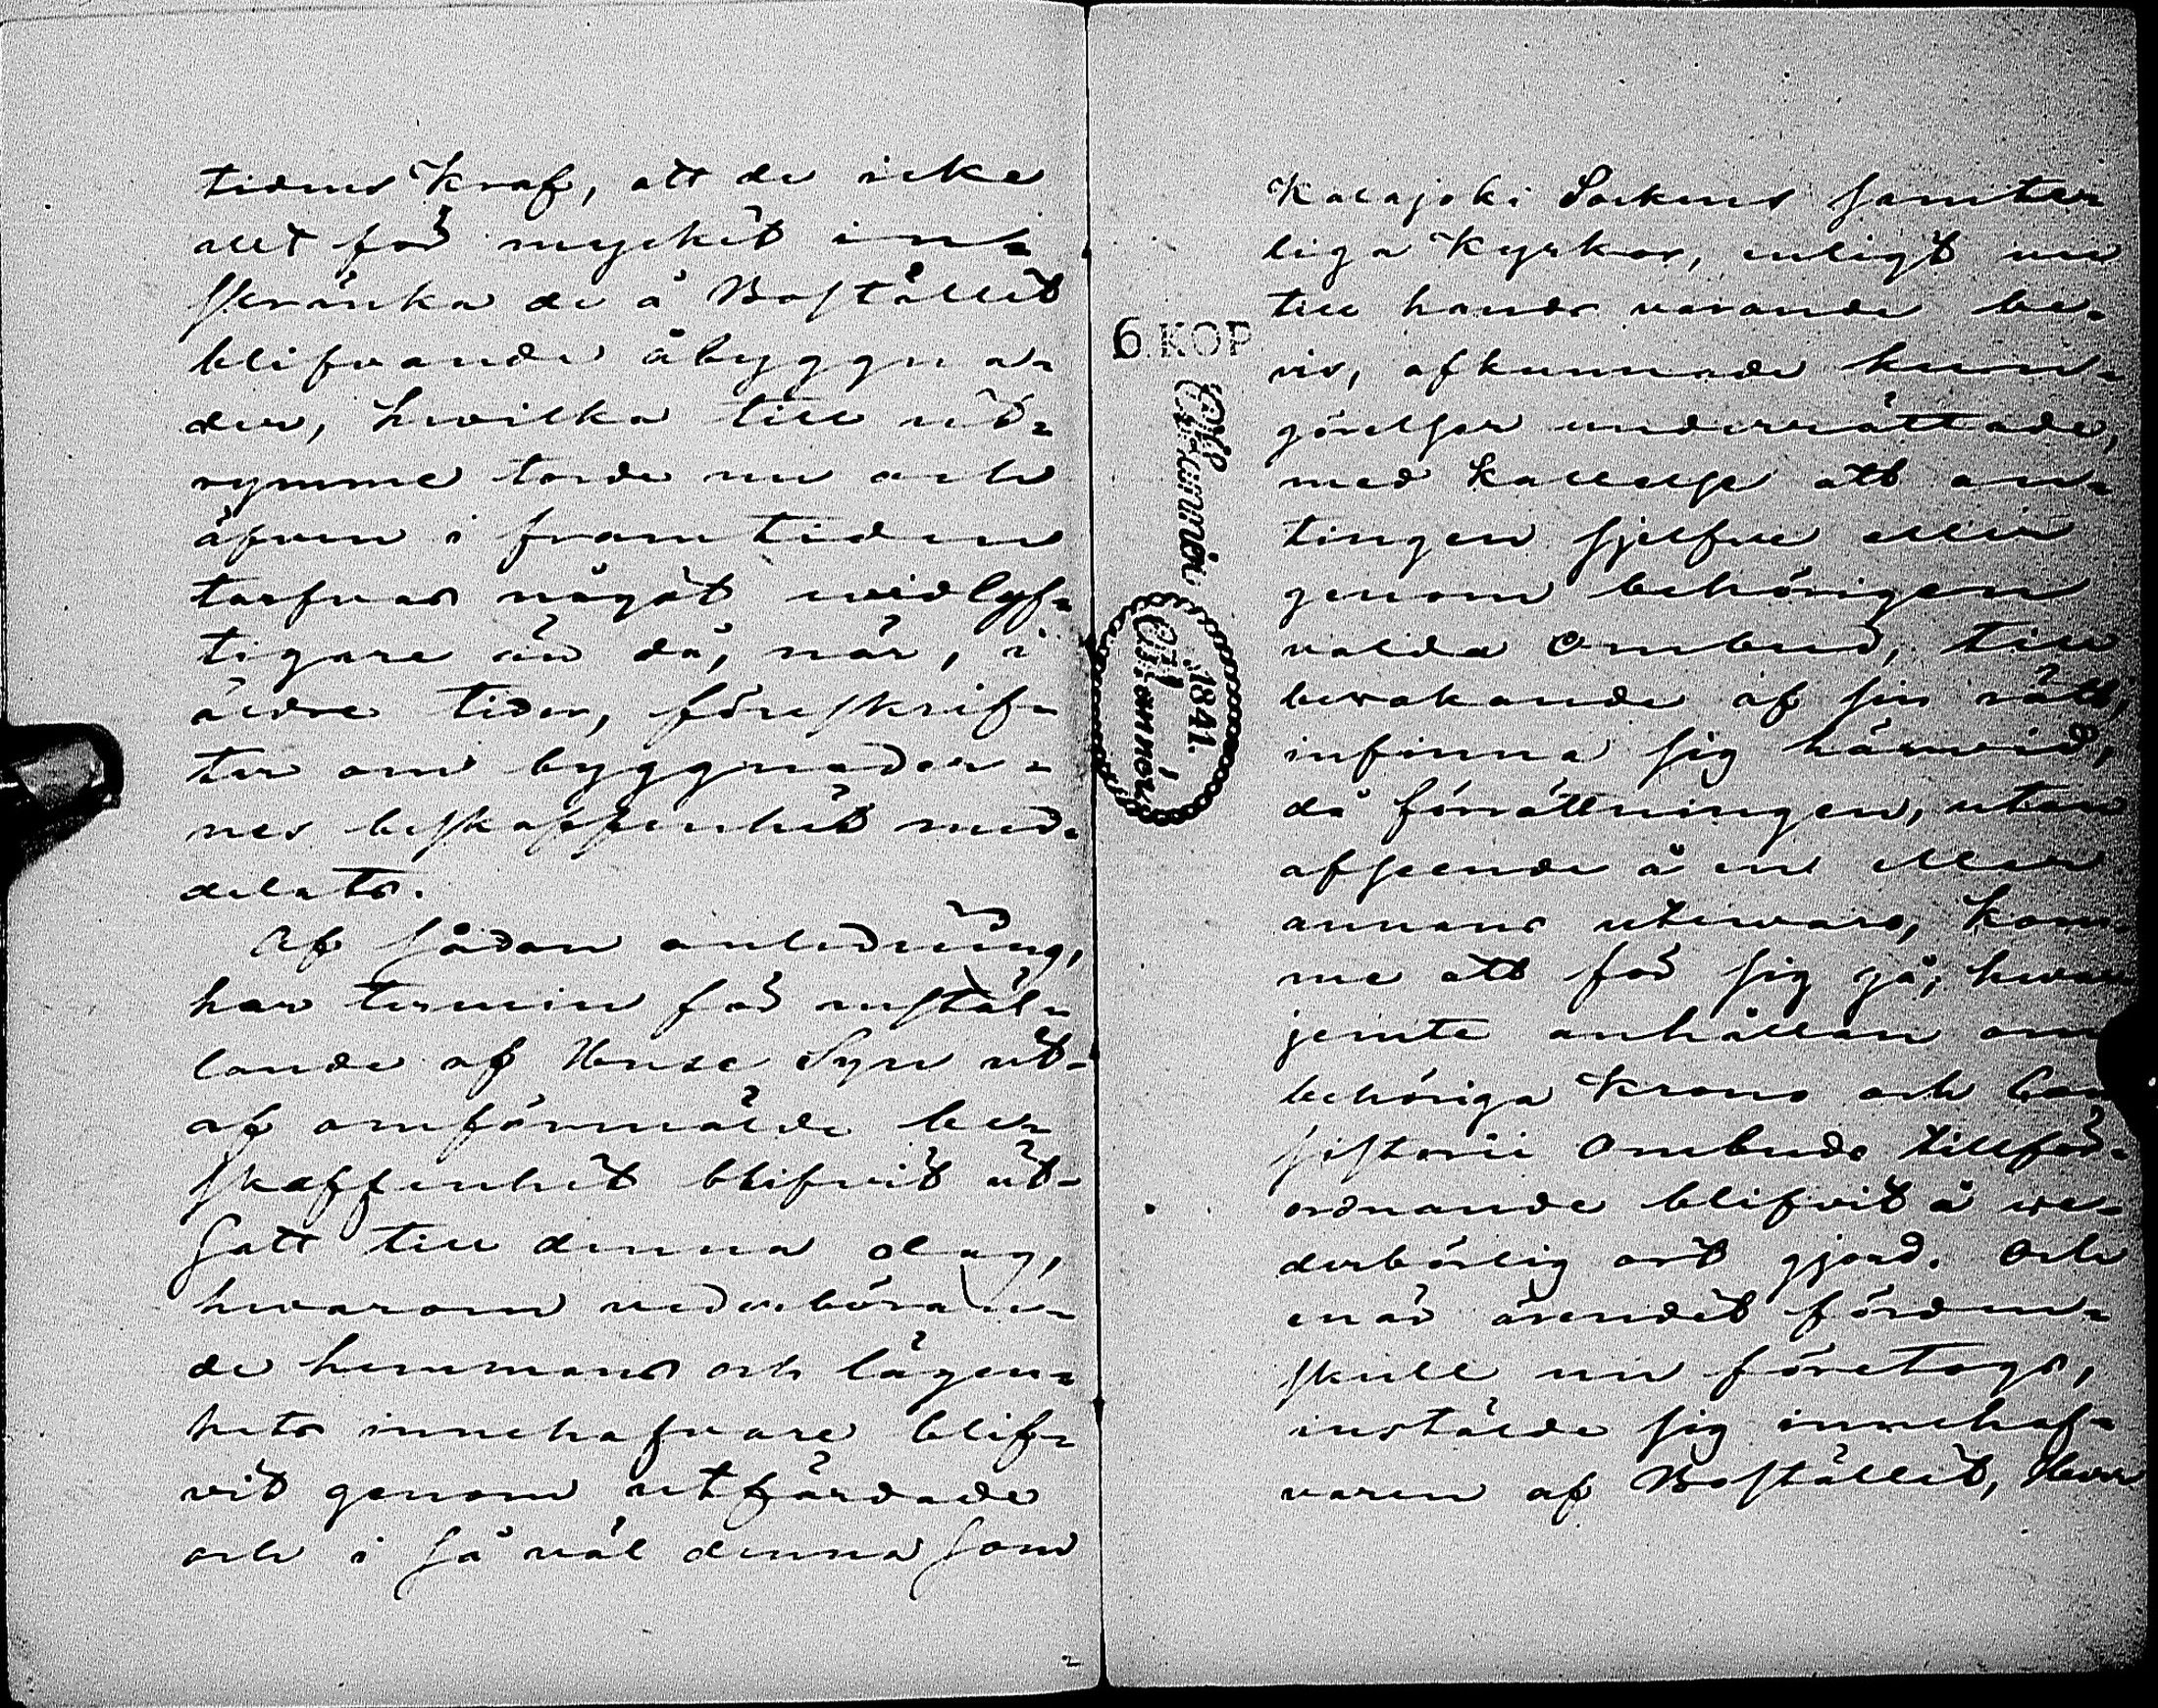 tidens kraf, att de icke
allt för myckit in=
skränka de å Boställlet
blifvande åbyggna=
der, hvilka till ut=
rymme torde nu och
äfven i framtiden
tarfvas någåt vidlyf=
tigare än då, när, i
äldre tider, föreskrif=
ter om byggnader=
nes beskaffenhet med=
delats.
Af sådan anledning,
har termin för anstäl=
lande af Huse Syn ut=
af omförmälde be=
skaffenhet blifvit ut=
satt till denna dag,
hvarom vederböran=
de hemmans och lägen=
hets innehafvare blif=
vit genom utfärdade
och i så väl denna som
2
Kalajoki Sockens samter
liga Kyrkor, enligt nu
till hands varande be=
vis, afkunnade kun=
görelser underrättade,
med kallelse att an=
tingen sjelfve eller
genom behörigen
valda Ombud, till
bevakande af sin rätt,
infinna sig härvid,
då förrättningen, utan
afseende å en eller
annans utevaro, kom
me att för sig gå; hvar
jemte anhållan om
behöriga Krono och Con
sistorii Ombuds tillför=
ordnande blifvit å ve=
derbörlig ort gjord. Och
enär ärendet förden=
skull nu företogs,
instälde sig innehaf=
varen af Bostället, Herr
6 KOP
1841.